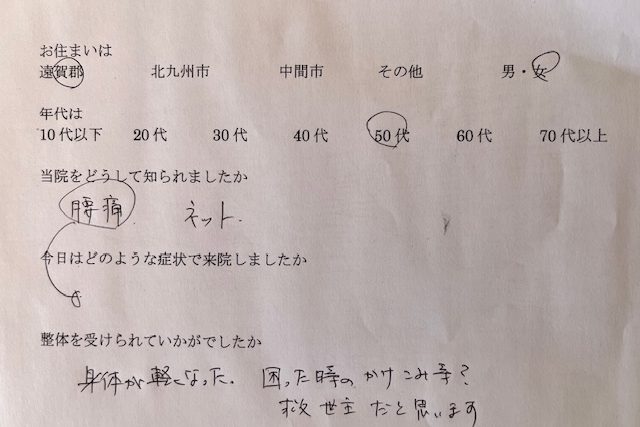 お住まいは
遠賀郡 北九州市 中間市 その他 男・女
年代は
10代以下 20代 30代 40代 50代 60代 70代以上
当院をどうして知られましたか
腰痛. ネット.
今日はどのような症状で来院しましたか
整体を受けられていかがでしたか
身体が軽くなった. 困った時のかけこみ寺?
救世主だと思います